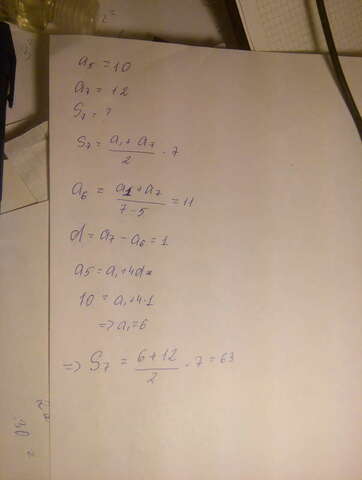 a₅ = 10
a₇ = 12
S₇ = ?
S₇ = (a₁ + a₇)/2 · 7
a₆ = (a₁ + a₇)/(7 - 5) = 11
d = a₇ - a₆ = 1
a₅ = a₁ + 4d
10 = a₁ + 4·1
=> a₁ = 6
=> S₇ = (6 + 12)/2 · 7 = 63